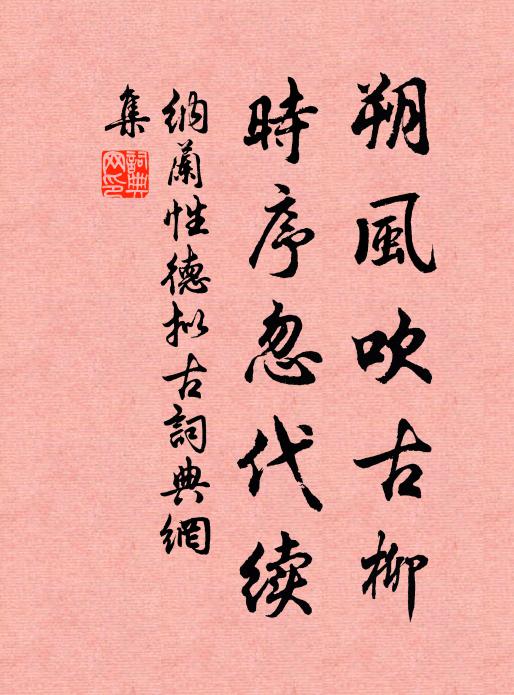 朔風吹古柳
時序忽代续
納蘭性德拟古詞典網
集
詞典网印